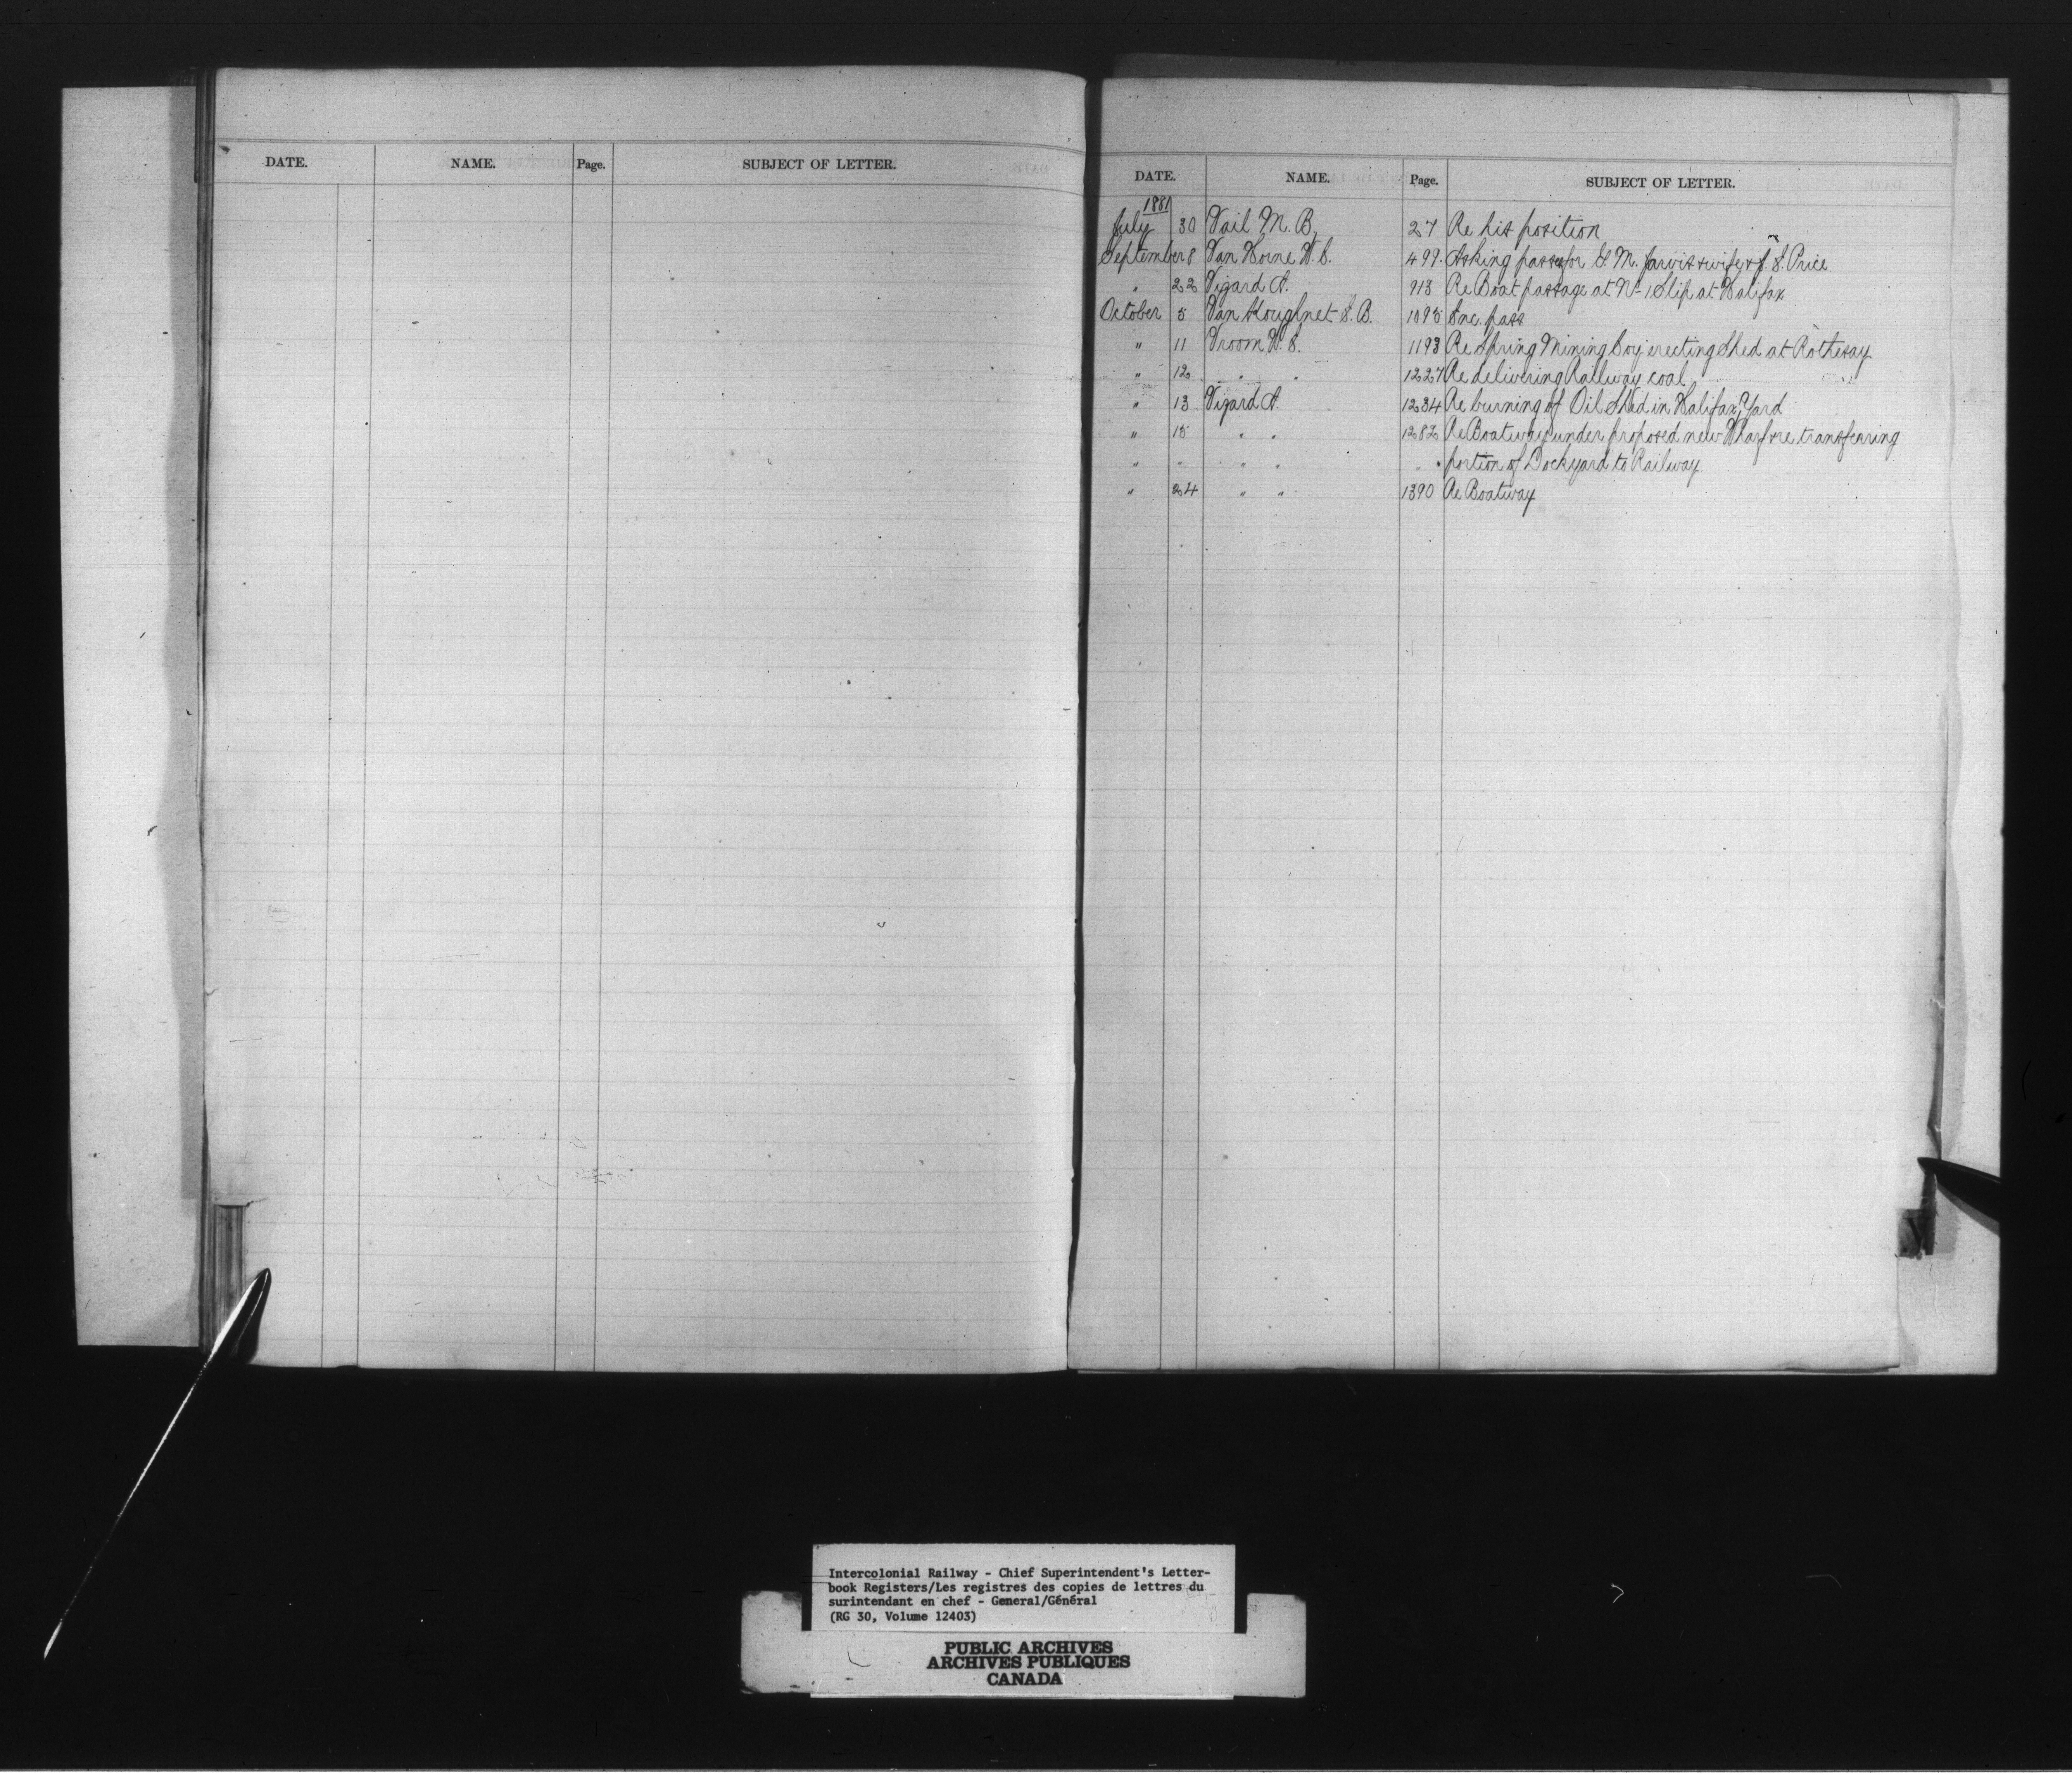 DATE. NAME. Page. SUBJECT OF LETTER.
DATE. NAME. Page. SUBJECT OF LETTER.
1881
July 30 Vail M. B. 27 Re his position
September 8 Van Horne W. C. 499. Asking passes for G. M. Jarvis & wife & J. S. Price
" 22 Vizard A. 913 Re Boat passage at No 1 Slip at Halifax
October 5 Van Koughnet S. B. 1095 Enc. pass
" 11 Vroom W. E. 1193 Re Spring Mining Coy erecting Shed at Rothesay
" 12 " " 1227 Re delivering Railway coal
" 13 Vizard A. 1234 Re burning of Oil Shed in Halifax Yard
" 15 " " 1282 Re Boatway under proposed new Wharf & re transferring
" " " " " " portion of Dockyard to Railway
" 24 " " 1390 Re Boatway
Intercolonial Railway - Chief Superintendent's Letter-
book Registers/Les registres des copies de lettres du
surintendant en chef - General/Général
(RG 30, Volume 12403)
PUBLIC ARCHIVES
ARCHIVES PUBLIQUES
CANADA